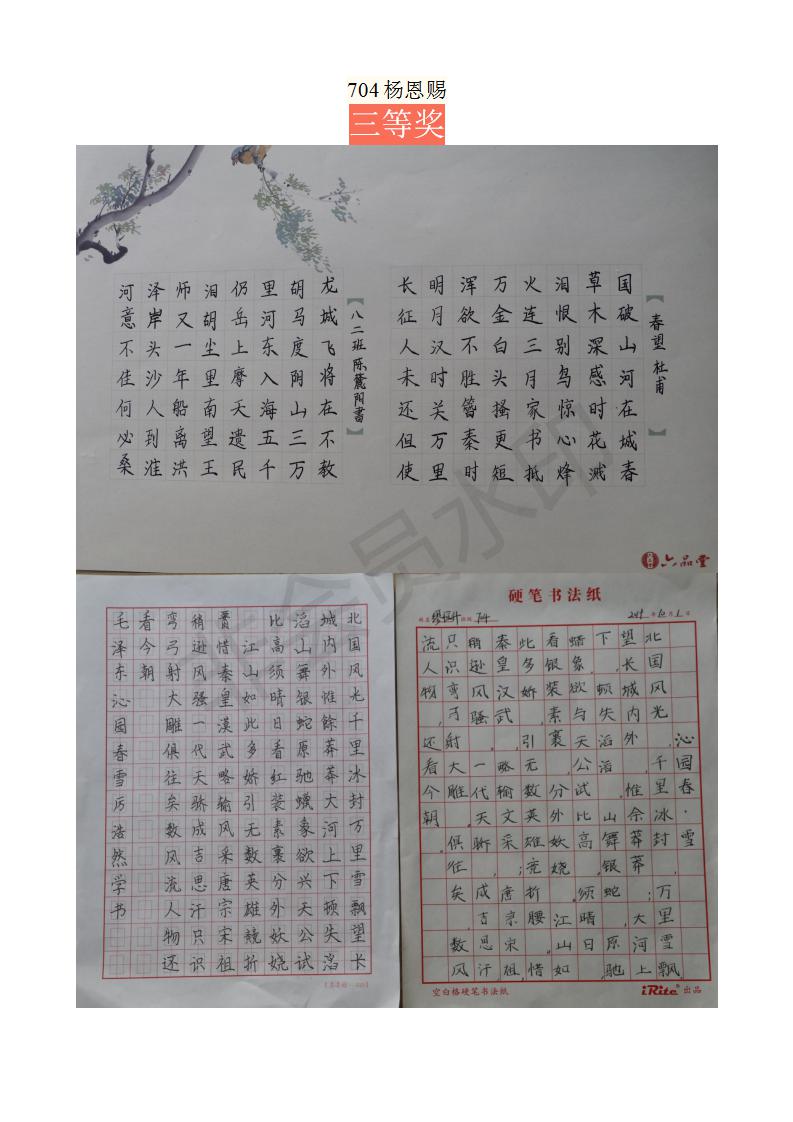 704杨恩赐
三等奖
春望 杜甫
国破山河在城春
草木深感时花溅
泪恨别鸟惊心烽
火连三月家书抵
万金白头搔更短
浑欲不胜簪秦时
明月汉时关万里
长征人未还但使
龙城飞将在不教
胡马度阴山三万
里河东入海五千
仞岳上摩天遗民
泪胡尘里南望王
师又一年船离洪
泽岸头沙人到淮
河意不佳何必桑
八二班 陈麓阳書
六品堂
非会员水印
北国风光千里冰封万里雪飘望长
城内外惟餘莽莽大河上下顿失滔
滔山舞银蛇原驰蠟象欲兴天公试
比高须晴日看红装素裹分外妖娆
江山如此多娇引无数英雄競折
惜秦皇漢武略输风采唐宗宋祖
稍逊风骚一代天骄成吉思汗只识
弯弓射大雕俱往矣数风流人物还
看今朝
毛泽东沁园春雪厉浩然学书
硬笔书法纸
姓名 班级 704 年 月 日
沁园春·雪
北国风光，千里冰封，万里雪飘。
望长城内外，惟余莽莽；大河上
下，顿失滔滔。山舞银蛇，原驰
蜡象，欲与天公试比高。须晴日，
看银装素裹，分外妖娆。江山如
此多娇，引无数英雄竞折腰。惜
秦皇汉武，略输文采；唐宗宋祖，
稍逊风骚。一代天骄，成吉思汗，
只识弯弓射大雕。俱往矣，数风
流人物，还看今朝。
空白格硬笔书法纸
iRite® 出品